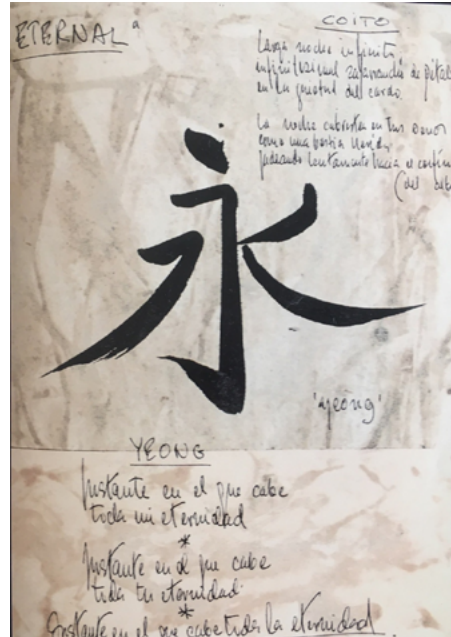 ETERNAL a
COITO
Larga noche infinita,
infinitesimal zarabanda de pétal
en la quietud del cardo.
La noche cubierta en tus senos
como una bestia herida
jadeando lentamente hacia el confín
(del
永
'yeong'
YEONG
Instante en el que cabe
toda mi eternidad
*
Instante en el que cabe
toda tu eternidad
*
Instante en el que cabe toda la eternidad